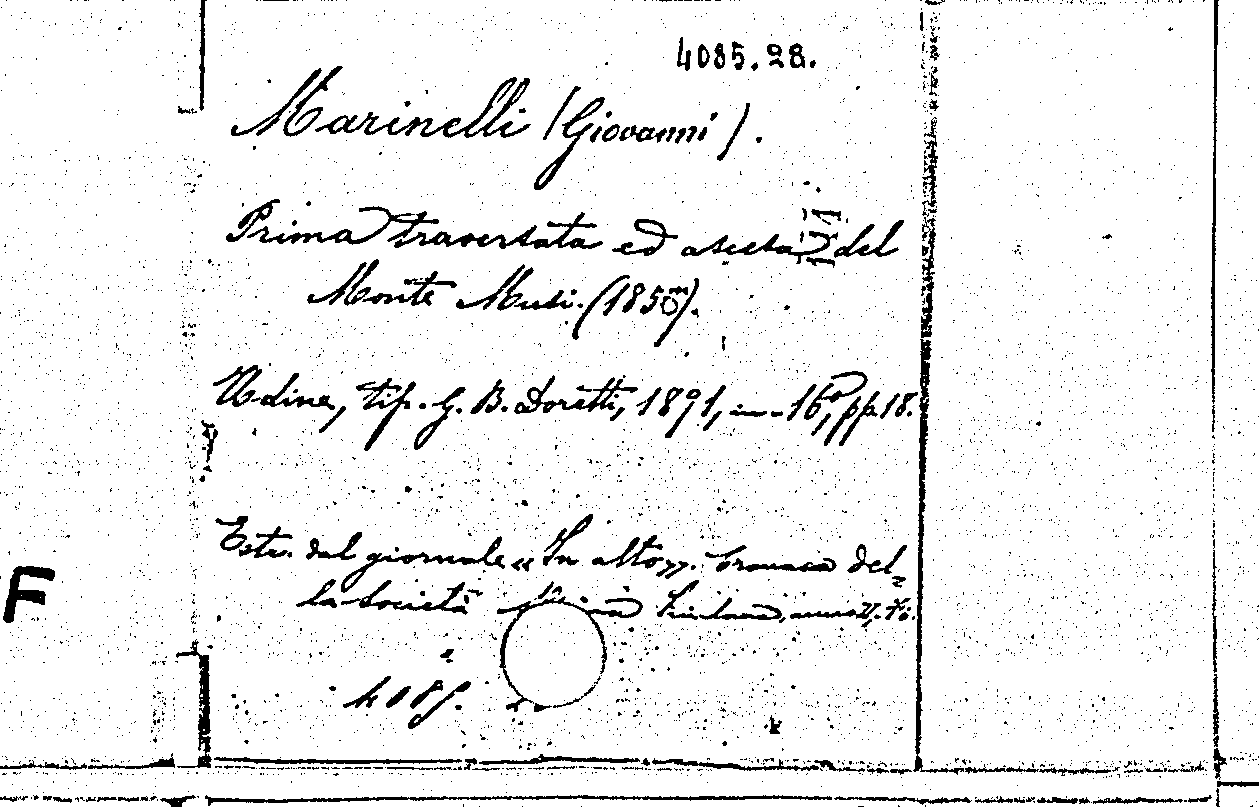 4085.28.
Marinelli (Giovanni).
Prima traversata ed ascesa del
Monte Musi. (1855m).
Udine, tip. G. B. Doretti, 1891, in-16°, pp. 18.
Estr. dal giornale «In alto». Cronaca del-
la Società Friulana, anno II,
4085.
F